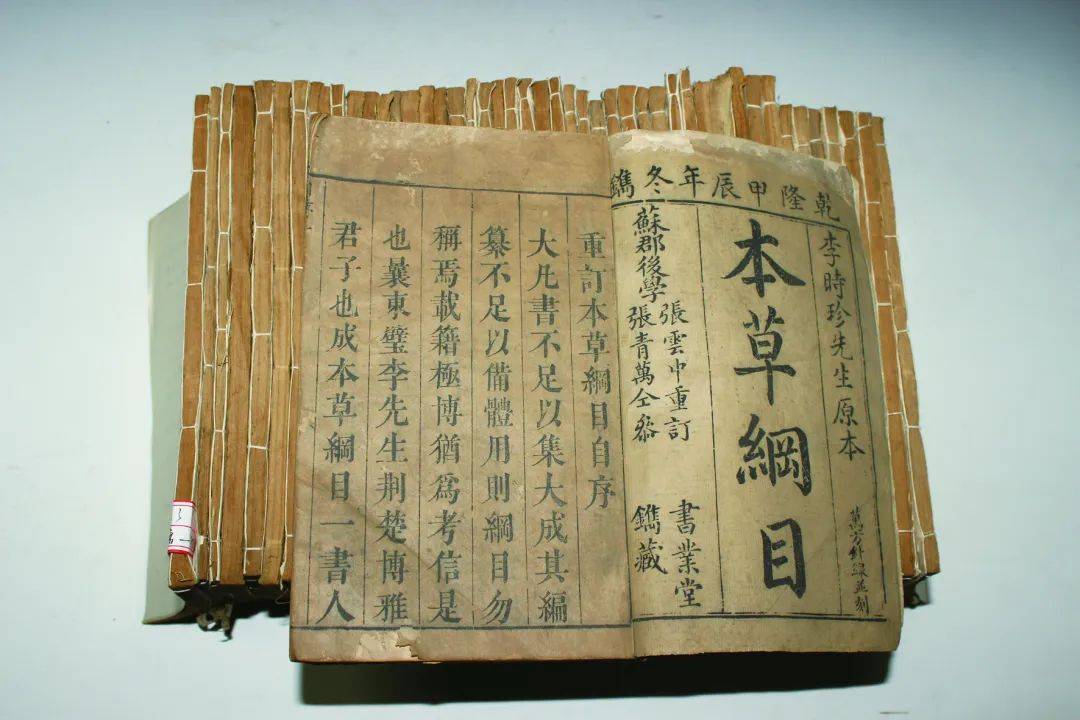 乾隆甲辰年冬鐫
李時珍先生原本
本草綱目
張雲中重訂
蘇郡後學
張青萬仝參
書業堂
鐫藏
重訂本草綱目自序
大凡書不足以集大成其編
纂不足以備體用則綱目勿
稱焉載籍極博猶爲考信是
也曩東璧李先生荆楚博雅
君子也成本草綱目一書人